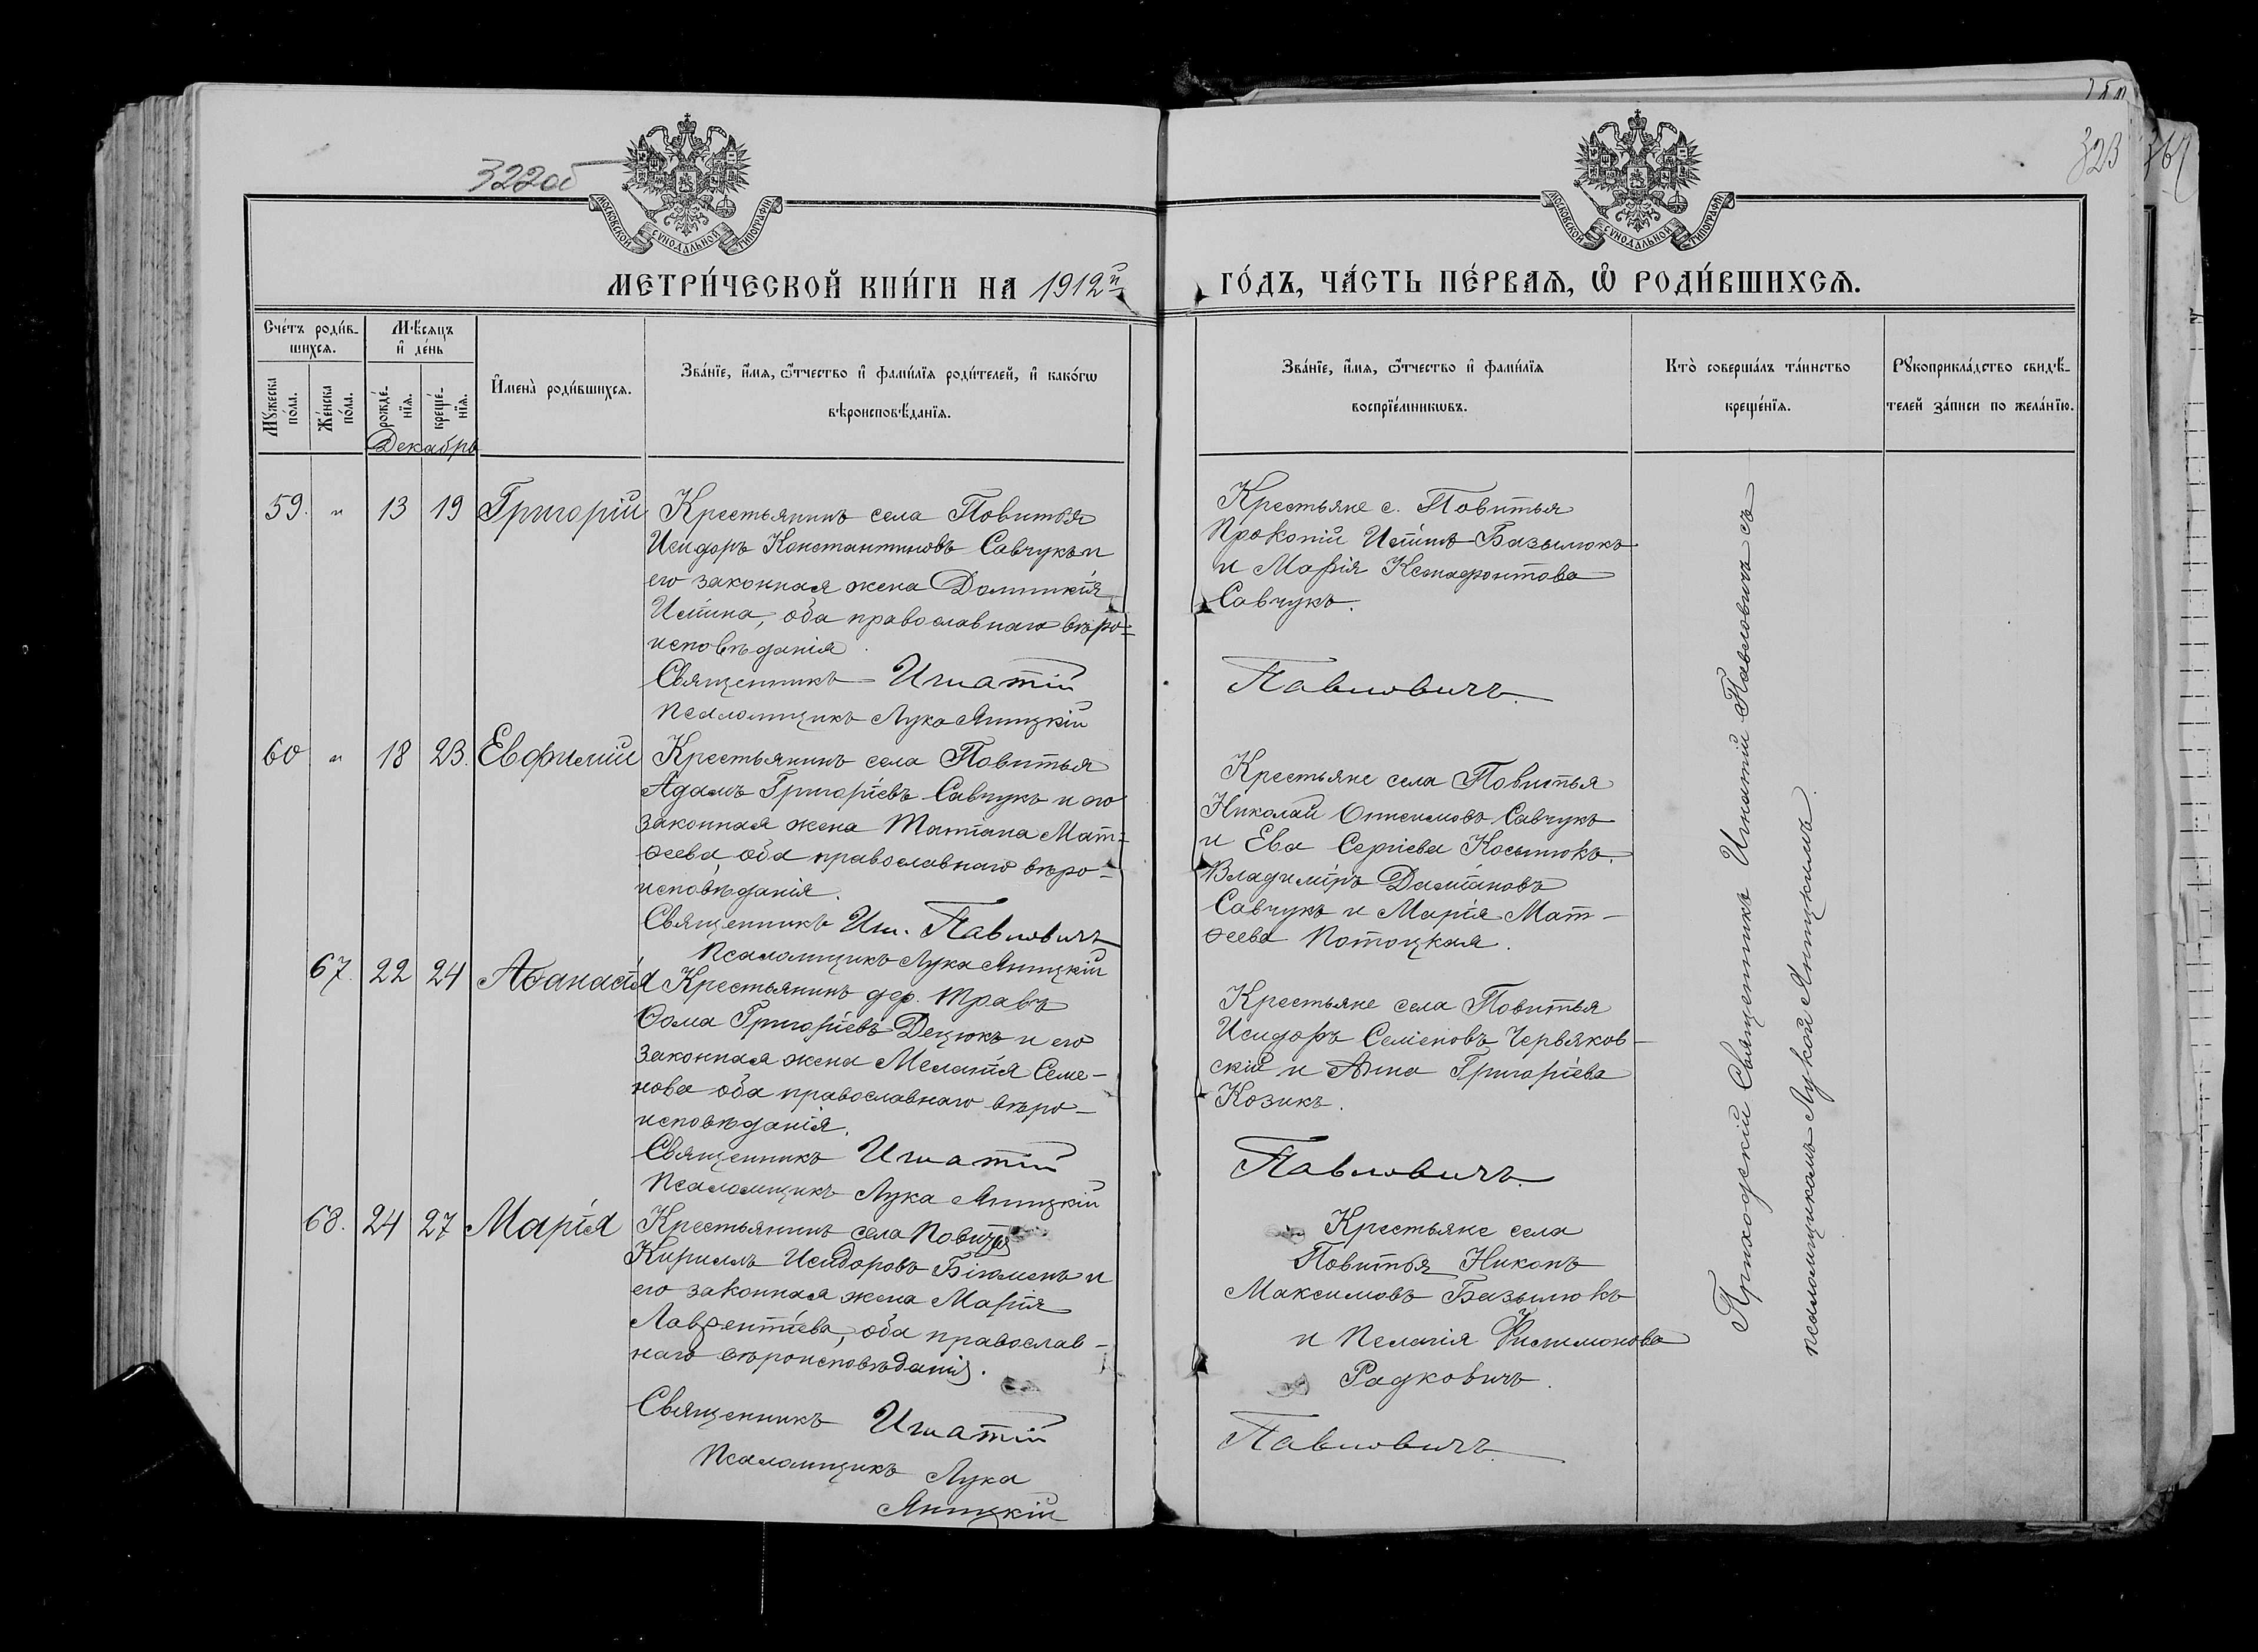 322об
323
МОСКОВСКОЙ СУНОДАЛЬНОЙ ТИПОГРАФІИ
МОСКОВСКОЙ СУНОДАЛЬНОЙ ТИПОГРАФІИ
МЕТРИ́ЧЕСКОЙ КНИ́ГИ НА 1912й ГО́ДЪ, ЧА́СТЬ ПЕ́РВАѦ, Ѽ РОДИ́ВШИХСѦ.
Сче́тъ роди́в-
шихсѧ.
Мѣ́сѧцъ
и҆ де́нь
Мꙋ́жеска
по́ла.
Же́нска
по́ла.
рожде́-
нїѧ.
креще́-
нїѧ.
И҆мена̀ роди́вшихсѧ.
Зва́нїе, и҆́мѧ, ѻ҆́тчество и҆ фами́лїѧ роди́телей, и҆ како́гѡ
вѣроисповѣ́данїѧ.
Зва́нїе, и҆́мѧ, ѻ҆́тчество и҆ фами́лїѧ
воспрїе́мникѡвъ.
Кто̀ соверша́лъ та́инство
креще́нїѧ.
Рꙋкоприкла́дство свидѣ́-
телей за́писи по жела́нїю.
Декабрь
59. „ 13 19 Григорій
Крестьянинъ села Повитья
Исидоръ Константиновъ Савчукъ и
его законная жена Домникія
Исаіина, оба православнаго вѣро-
исповѣданія
Священникъ Игнатій
Псаломщикъ Лука Яницкій
Крестьяне с. Повитья
Прокопій Исаіинъ Базылюкъ
и Марія Ксенофонтова
Савчукъ.
Павловичъ.
60 „ 18 23. Евфимій
Крестьянинъ села Повитья
Адамъ Григоріевъ Савчукъ и его
законная жена Татіана Мат-
ѳеева, оба православнаго вѣро-
исповѣданія.
Священникъ Игн. Павловичъ
Псаломщикъ Лука Яницкій
Крестьяне села Повитья
Николай Онисимовъ Савчукъ
и Ева Сергіева Касынюкъ.
Владиміръ Даміановъ
Савчукъ и Марія Мат-
ѳеева Потоцкая.
67. 22 24 Аѳанасія
Крестьянинъ дер. Травъ
Ѳома Григоріевъ Децюкъ и его
законная жена Меланія Семе-
нова оба православнаго вѣро-
исповѣданія.
Священникъ Игнатій
Псаломщикъ Лука Яницкій
Крестьяне села Повитья
Исидоръ Семеновъ Червяков-
скій и Анна Григоріева
Козикъ.
Павловичъ.
68. 24 27 Марія
Крестьянинъ села Повитья
Кириллъ Исидоровъ Бігоменъ и
его законная жена Марія
Лаврентіева, оба православ-
наго вѣроисповѣданія.
Священникъ Игнатій
Псаломщикъ Лука
Яницкій
Крестьяне села
Повитья Никонъ
Максимовъ Базылюкъ
и Пелагія Филимонова
Радковичъ.
Павловичъ.
Приходскій Священникъ Игнатій Павловичъ съ
псаломщикомъ Лукой Яницкимъ.